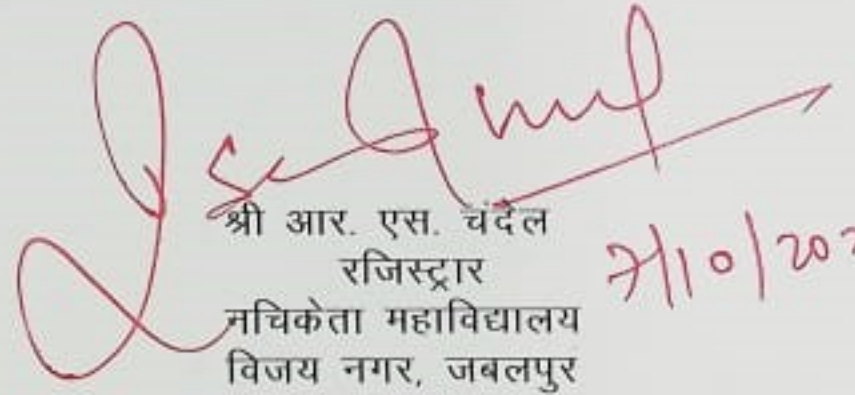 श्री आर. एस. चंदेल
रजिस्ट्रार
नचिकेता महाविद्यालय
विजय नगर, जबलपुर
7/10/202